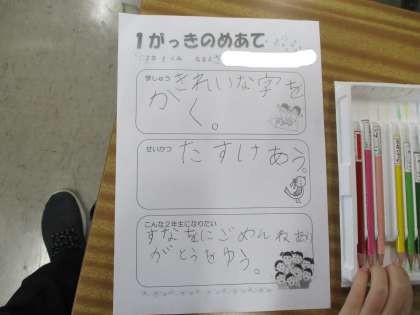 1がっきのめあて
2年1くみ なまえ
学しゅう きれいな字を
かく。
せいかつ たすけあう。
こんな2年生になりたい
すなをにごめんねあり
がとうをゆう。